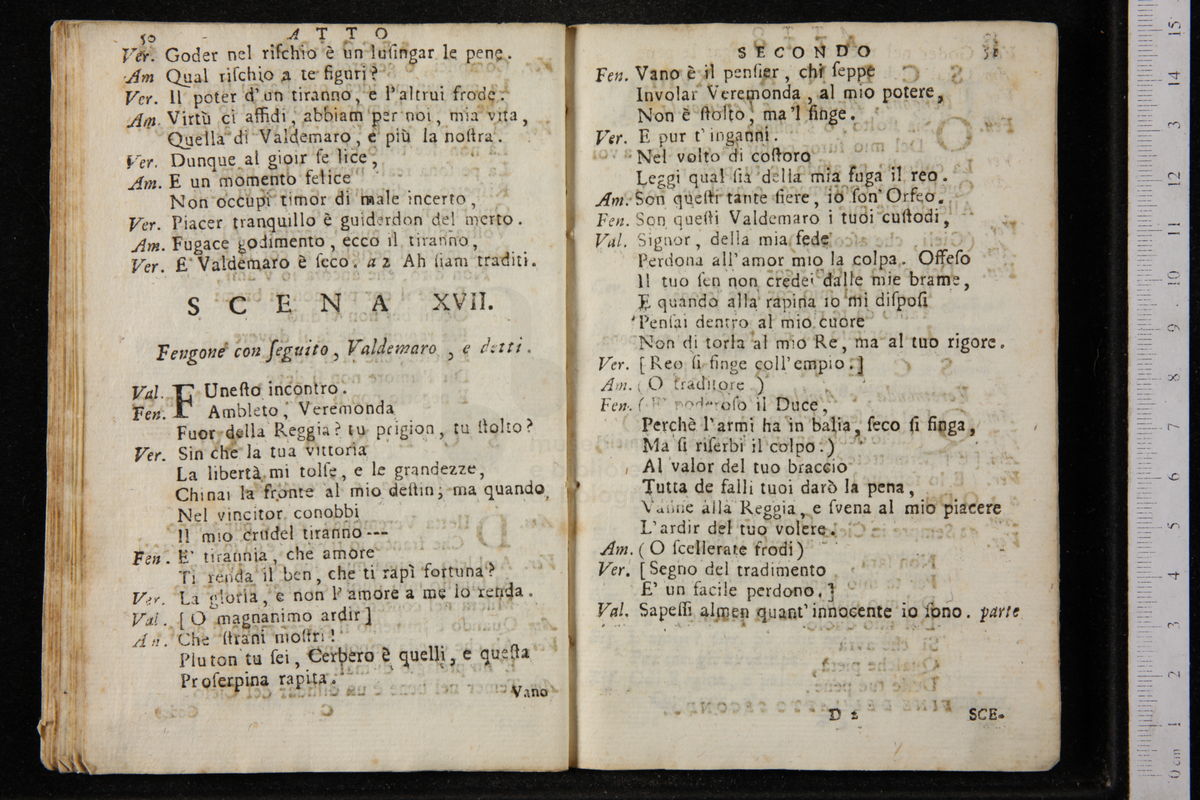 50
ATTO
Ver. Goder nel riſchio è un luſingar le pene.
Am Qual riſchio a te figuri?
Ver. Il poter d'un tiranno, e l'altrui frode.
Am. Virtù ci affidi, abbiam per noi, mia vita,
Quella di Valdemaro, e più la noſtra.
Ver. Dunque al gioir ſe lice,
Am. E un momento felice
Non occupi timor di male incerto,
Ver. Piacer tranquillo è guiderdon del merto.
Am. Fugace godimento, ecco il tiranno,
Ver. E Valdemaro è ſeco. a 2 Ah ſiam traditi.
SCENA XVII.
Fengone con ſeguito, Valdemaro, e detti.
Val. FUneſto incontro.
Fen. Ambleto, Veremonda
Fuor della Reggia? tu prigion, tu ſtolto?
Ver. Sin che la tua vittoria
La libertà mi tolſe, e le grandezze,
Chinai la fronte al mio deſtin; ma quando
Nel vincitor conobbi
Il mio crudel tiranno ---
Fen. E' tirannia, che amore
Ti renda il ben, che ti rapì fortuna?
Ver. La gloria, e non l'amore a me lo renda.
Val. [O magnanimo ardir]
Am. Che ſtrani moſtri!
Pluton tu ſei, Cerbero è quelli, e queſta
Proſerpina rapita.
Vano
SECONDO
51
Fen. Vano è il penſier, chi ſeppe
Involar Veremonda, al mio potere,
Non è ſtolto, ma'l finge.
Ver. E pur t'inganni.
Nel volto di coſtoro
Leggi qual ſia della mia fuga il reo.
Am. Son queſti tante fiere, io ſon Orfeo.
Fen. Son queſti Valdemaro i tuoi cuſtodi,
Val. Signor, della mia fede
Perdona all'amor mio la colpa. Offeſo
Il tuo ſen non credei dalle mie brame,
E quando alla rapina io mi diſpoſi
Penſai dentro al mio cuore
Non di torla al mio Re, ma al tuo rigore.
Ver. [Reo ſi finge coll'empio.]
Am. (O traditore)
Fen. (E' poderoſo il Duce,
Perchè l'armi ha in balìa, ſeco ſi finga,
Ma ſi riſerbi il colpo.)
Al valor del tuo braccio
Tutta de falli tuoi darò la pena,
Vanne alla Reggia, e ſvena al mio piacere
L'ardir del tuo volere.
Am. (O ſcellerate frodi)
Ver. [Segno del tradimento
E' un facile perdono.]
Val. Sapeſſi almen quant'innocente io ſono. parte
D 2
SCE-